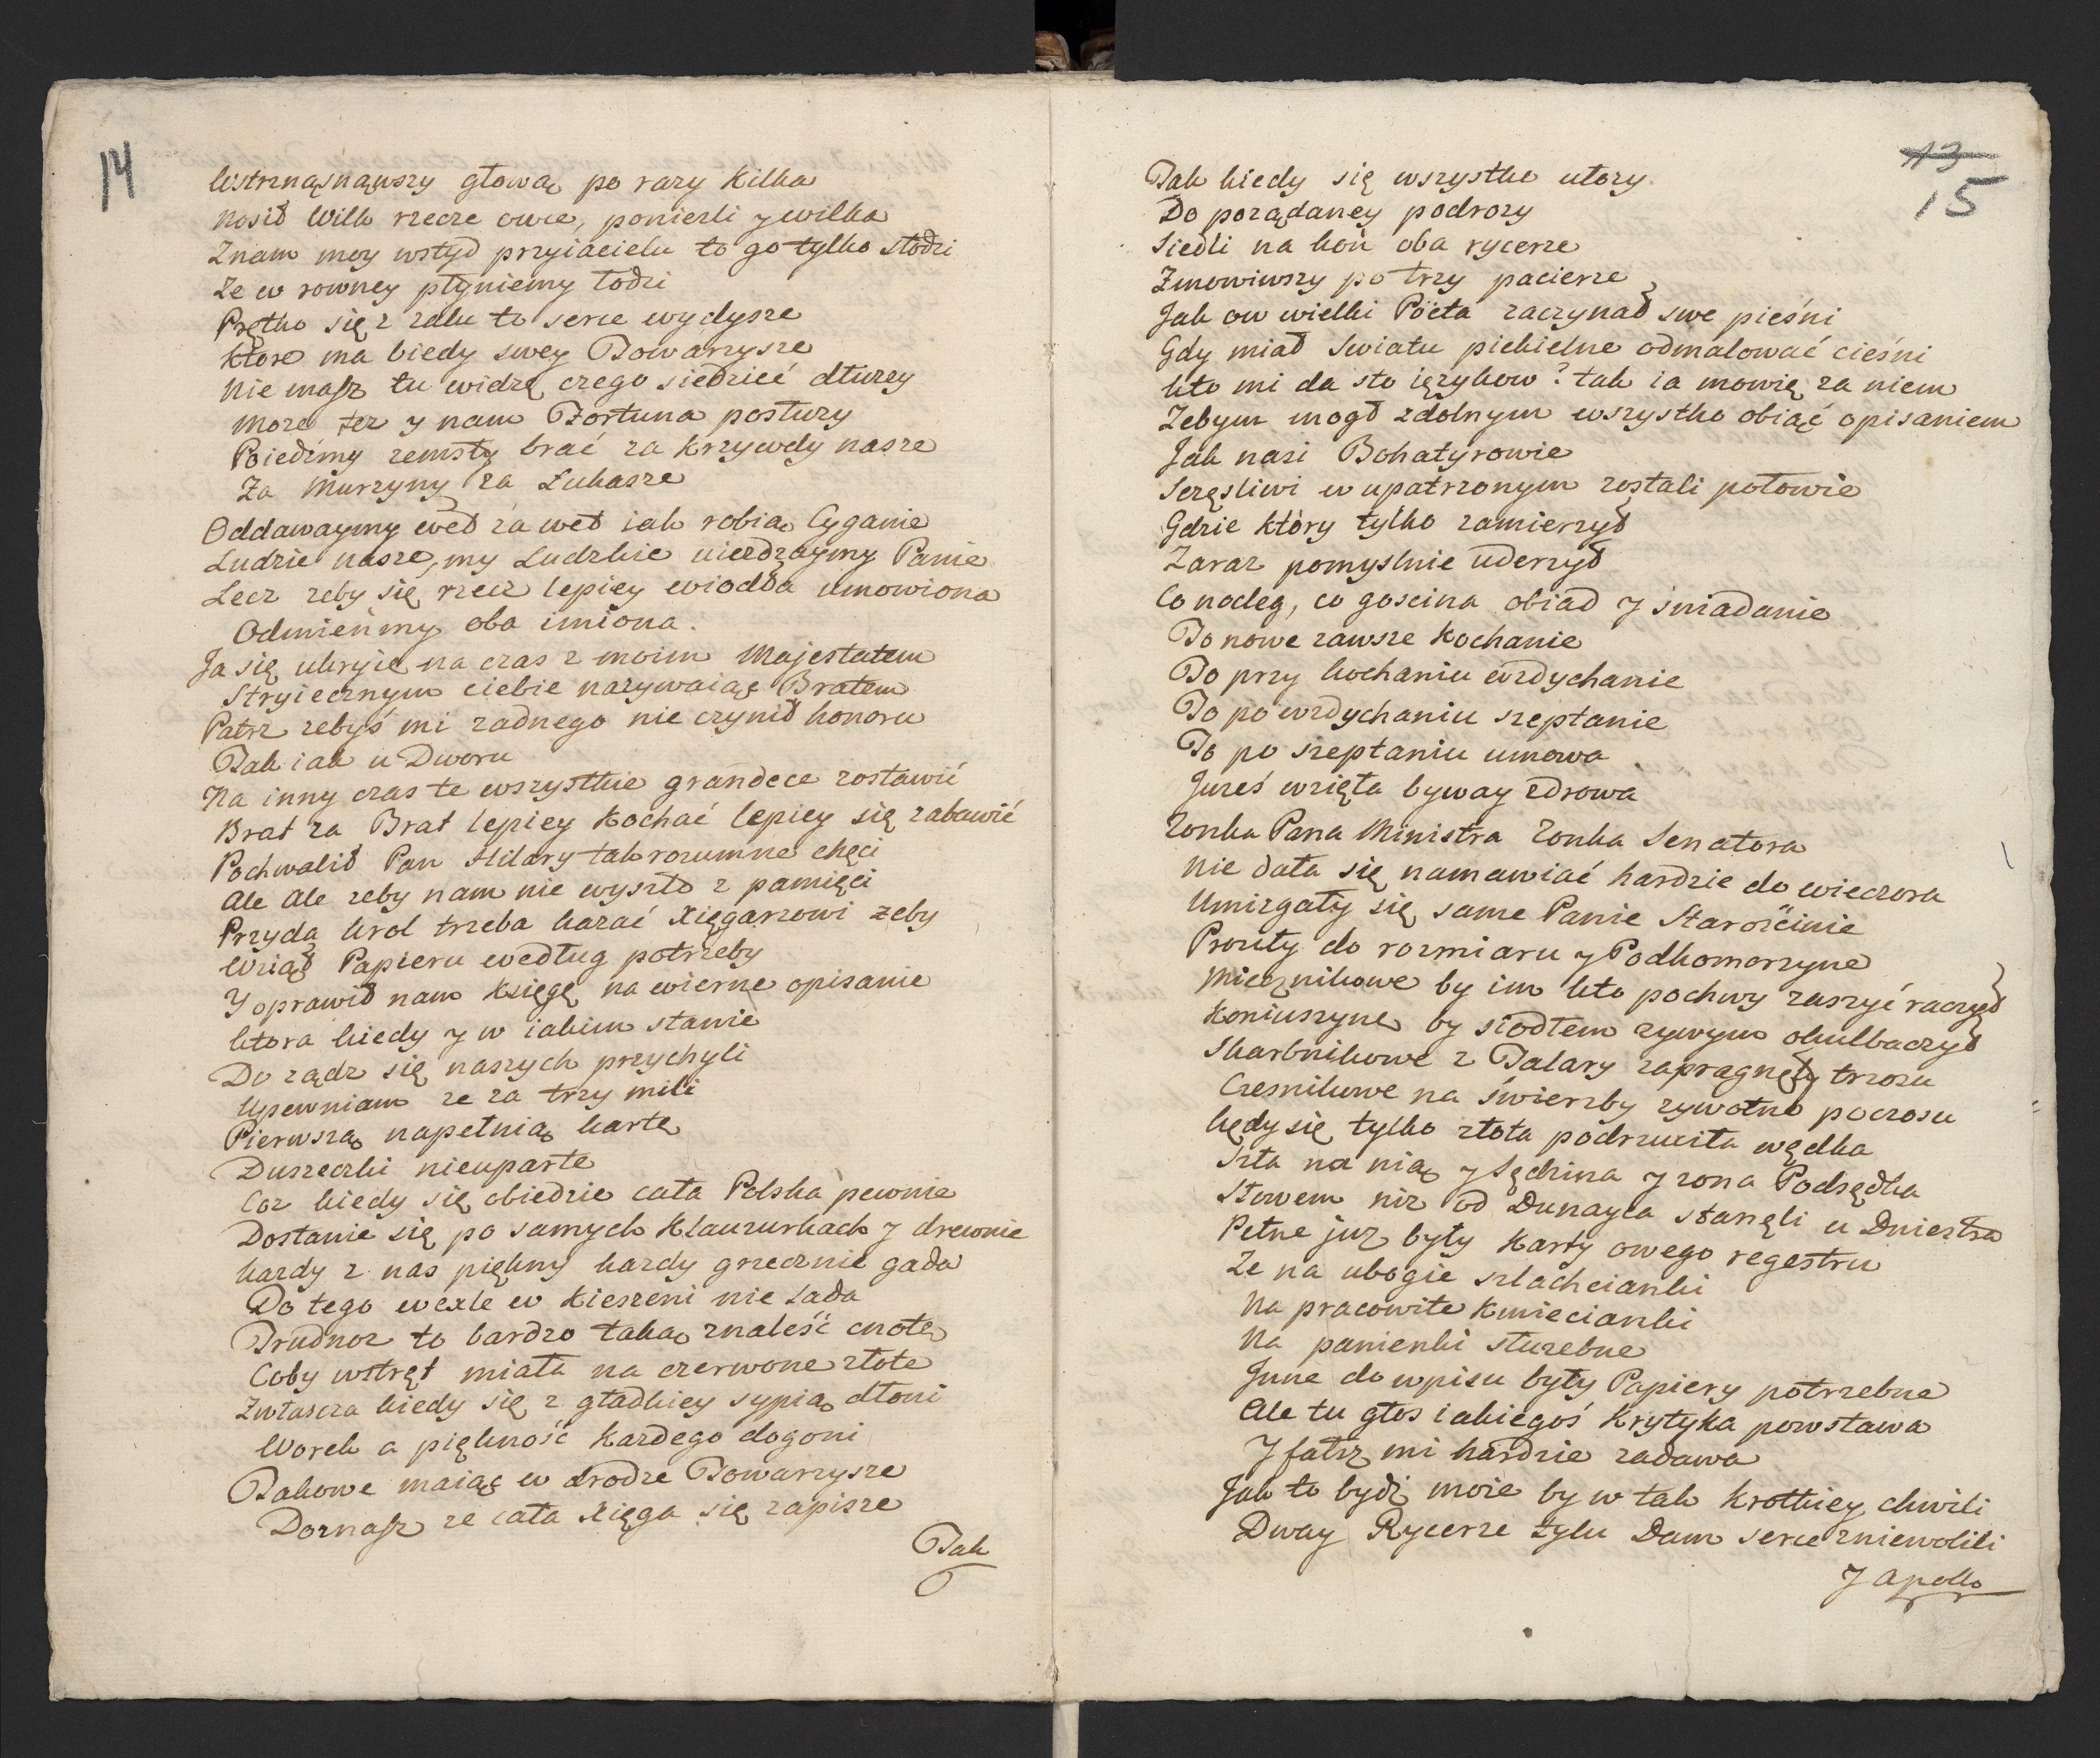 14
Wstrznąsnąwszy głową po razy kilka
Nosił Wilk rzecze owce, ponieśli y wilka
Znam moy wstyd przyiacielu to go tylko słodzi
Ze w rowney płyniemy łodzi
Prętko się z zalu to serce wydysze
Ktore ma biedy swey Towarzysze
Nie masz tu widzę czego siedzieć dłuzzy
Moze tez y nam Fortuna posłuzy
Poiedźmy zemsty brać za krzywdy nasze
Za Murzyny za Łukasze
Oddawaymy wet za wet iak robią Cyganie
Ludzie nasze, my Ludzkie uiezdzaymy Panie
Lecz zeby się rzecz lepiey wiodła umowiona
Odmieńmy oba imiona.
Ja się ukryię na czas z moim Majestatem
Stryiecznym ciebie nazywaiąc Bratem
Patrz zebyś mi zadnego nie czynił honoru
Tak iak u Dworu
Na inny czas te wszystkie grandece zostawić
Brat za Brat lepiey kochać lepiey się zabawić
Pochwalił Pan Hilary tak rozumne chęci
Ale Ale zeby nam nie wyszło z pamięci
Przyda krol trzeba kazać Xięgarzowi zeby
Wziął Papieru według potrzeby
Y oprawił nam Księgę na wierne opisanie
Ktora kiedy y w iakim stanie
Do ządz się naszych przychyli
Upewniam ze za trzy mili
Pierwszą napełnią kartę
Duszeczki nieuparte
Coz kiedy się obiedzie cała Polska pewnie
Dostanie się po samych Klauzurkach y drewnie
kazdy z nas piękny kazdy grzecznie gada
Do tego wexle w kieszeni nie lada
Trudnoz to bardzo taką znaleść cnotę
Coby wstręt miała na czerwone złote
Zwłascza kiedy się z gładkiey sypią dłoni
Worek a piękność kazdego dogoni
Takowe maiąc w drodze Towarzysze
Doznasz ze cała Xięga się zapisze
Tak
13
15
Tak kiedy się wszystko ułozy
Do poządaney podrozy
Siedli na koń oba rycerze
Zmowiwszy po trzy pacierze
Jak ow wielki Poëta zaczynał swe pieśni
Gdy miał Swiatu piekielne odmalować cieśni
kto mi da sto ięzykow? tak ia mowię za niem
Zebym mogł zdolnym wszystko obiąć opisaniem
Jak nasi Bohatyrowie
Sczęsliwi w upatrzonym zostali połowie
Gdzie ktory tylko zamierzył
Zaraz pomyslnie uderzył
Co nocleg, co goscina obiad y śniadanie
To nowe zawsze kochanie
To przy kochaniu wzdychanie
To po wzdychaniu szeptanie
To po szeptaniu umowa
Jużeś wzięta byway zdrowa
Zonka Pana Ministra Zonka Senatora
Nie dała się namawiać hardzie do wieczora
Umizgały się same Panie Starościnie
Prouty do rozmiaru y Podkomorzyne
Miecznikowe by im kto pochwy zaszyć raczył
Koniuszyne by siodłem zywym okulbaczył
Skarbnikowe z Talary zapragnęły trzosu
Czesnikowe na świerzby zywotne poczosu
kędy się tylko złota podrzuciła wędka
Szła na nią y Sędzina y zona Podsędka
Słowem niz od Dunayca stanęli u Dniestru
Pełne juz były karty owego regestru
Ze na ubogie szlachcianki
Na pracowite kmiecianki
Na panienki słuzebne
Jnne do wpisu były Papiery potrzebne
Ale tu głos iakiegoś krytyka powstawa
Y fałsz mi hardzie zadawa
Jak to bydź moze by w tak krotkiey chwili
Dway Rycerze tylu Dam serce zniewolili
Y Apollo